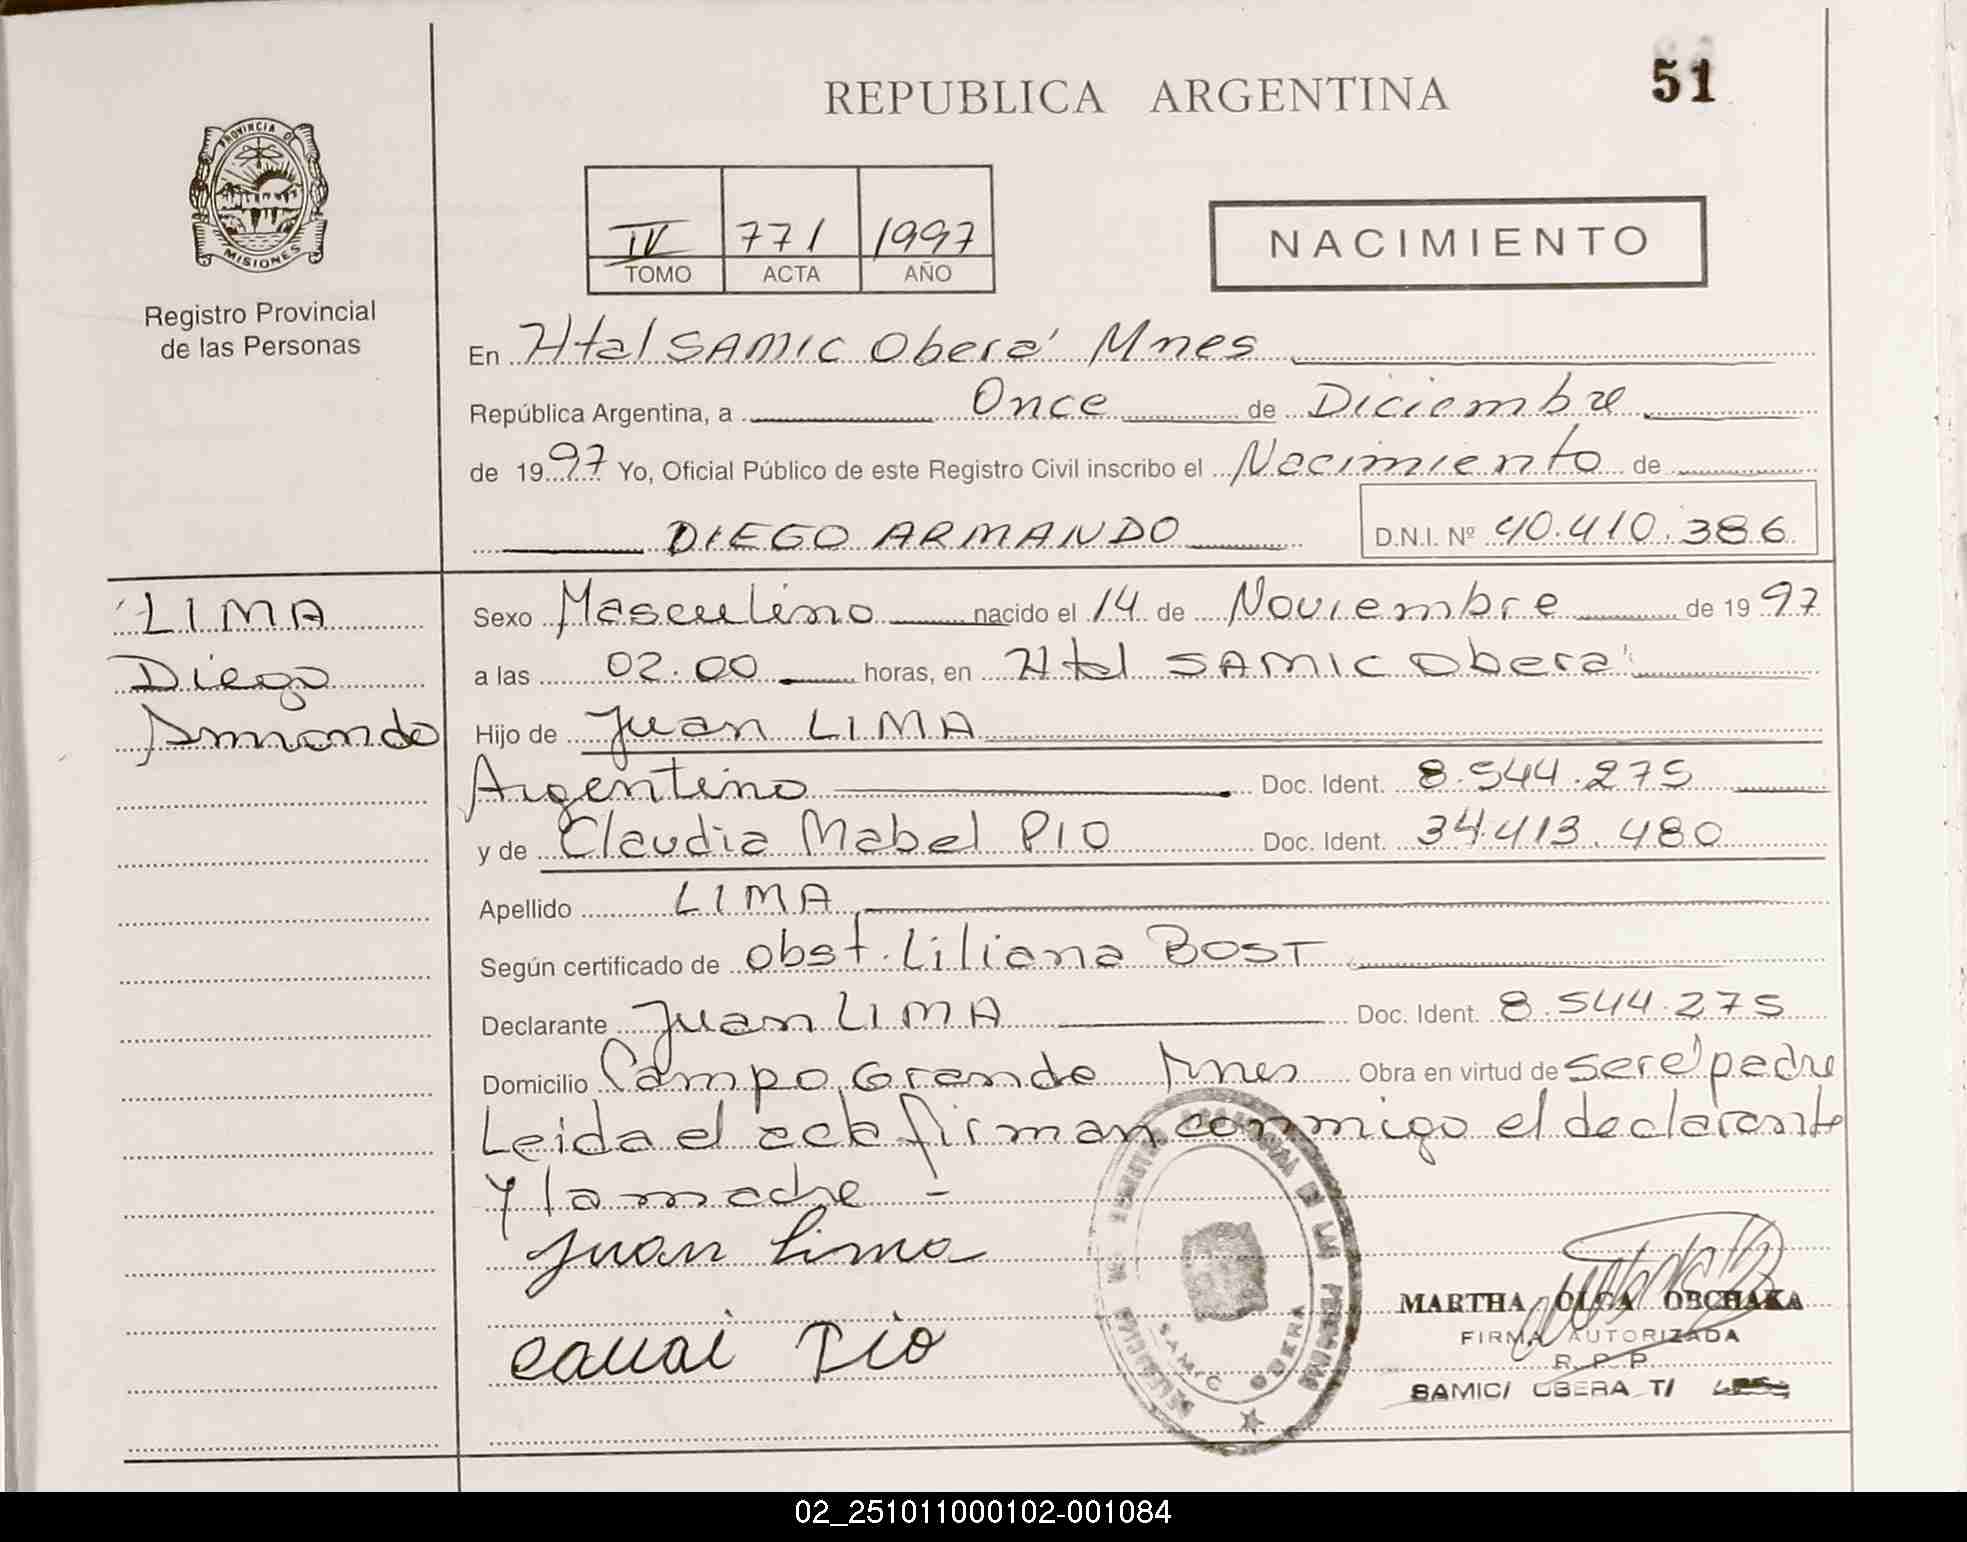 51
REPUBLICA ARGENTINA
PROVINCIA DE
MISIONES
Registro Provincial
de las Personas
IV 771 1997
TOMO ACTA AÑO
NACIMIENTO
En Htal SAMIC Oberá Mnes
República Argentina, a Once de Diciembre
de 1997 Yo, Oficial Público de este Registro Civil inscribo el Nacimiento de
DIEGO ARMANDO D.N.I. Nº 40.410.386
LIMA
Diego
Armando
Sexo Masculino nacido el 14 de Noviembre de 1997
a las 02.00 horas, en Htal SAMIC Oberá
Hijo de Juan LIMA
Argentino Doc. Ident. 8.544.275
y de Claudia Mabel PIO Doc. Ident. 34.413.480
Apellido LIMA
Según certificado de Obst. Liliana BOST
Declarante Juan LIMA Doc. Ident. 8.544.275
Domicilio Campo Grande Mnes Obra en virtud de ser el padre
Leida el acta firman conmigo el declarante
y la madre -
Juan Lima
Pio
DE LA
SAMIC OBERA
MARTHA OLGA OBCHAKA
FIRMA AUTORIZADA
R. P. P.
SAMIC/ OBERA T/
02_251011000102-001084